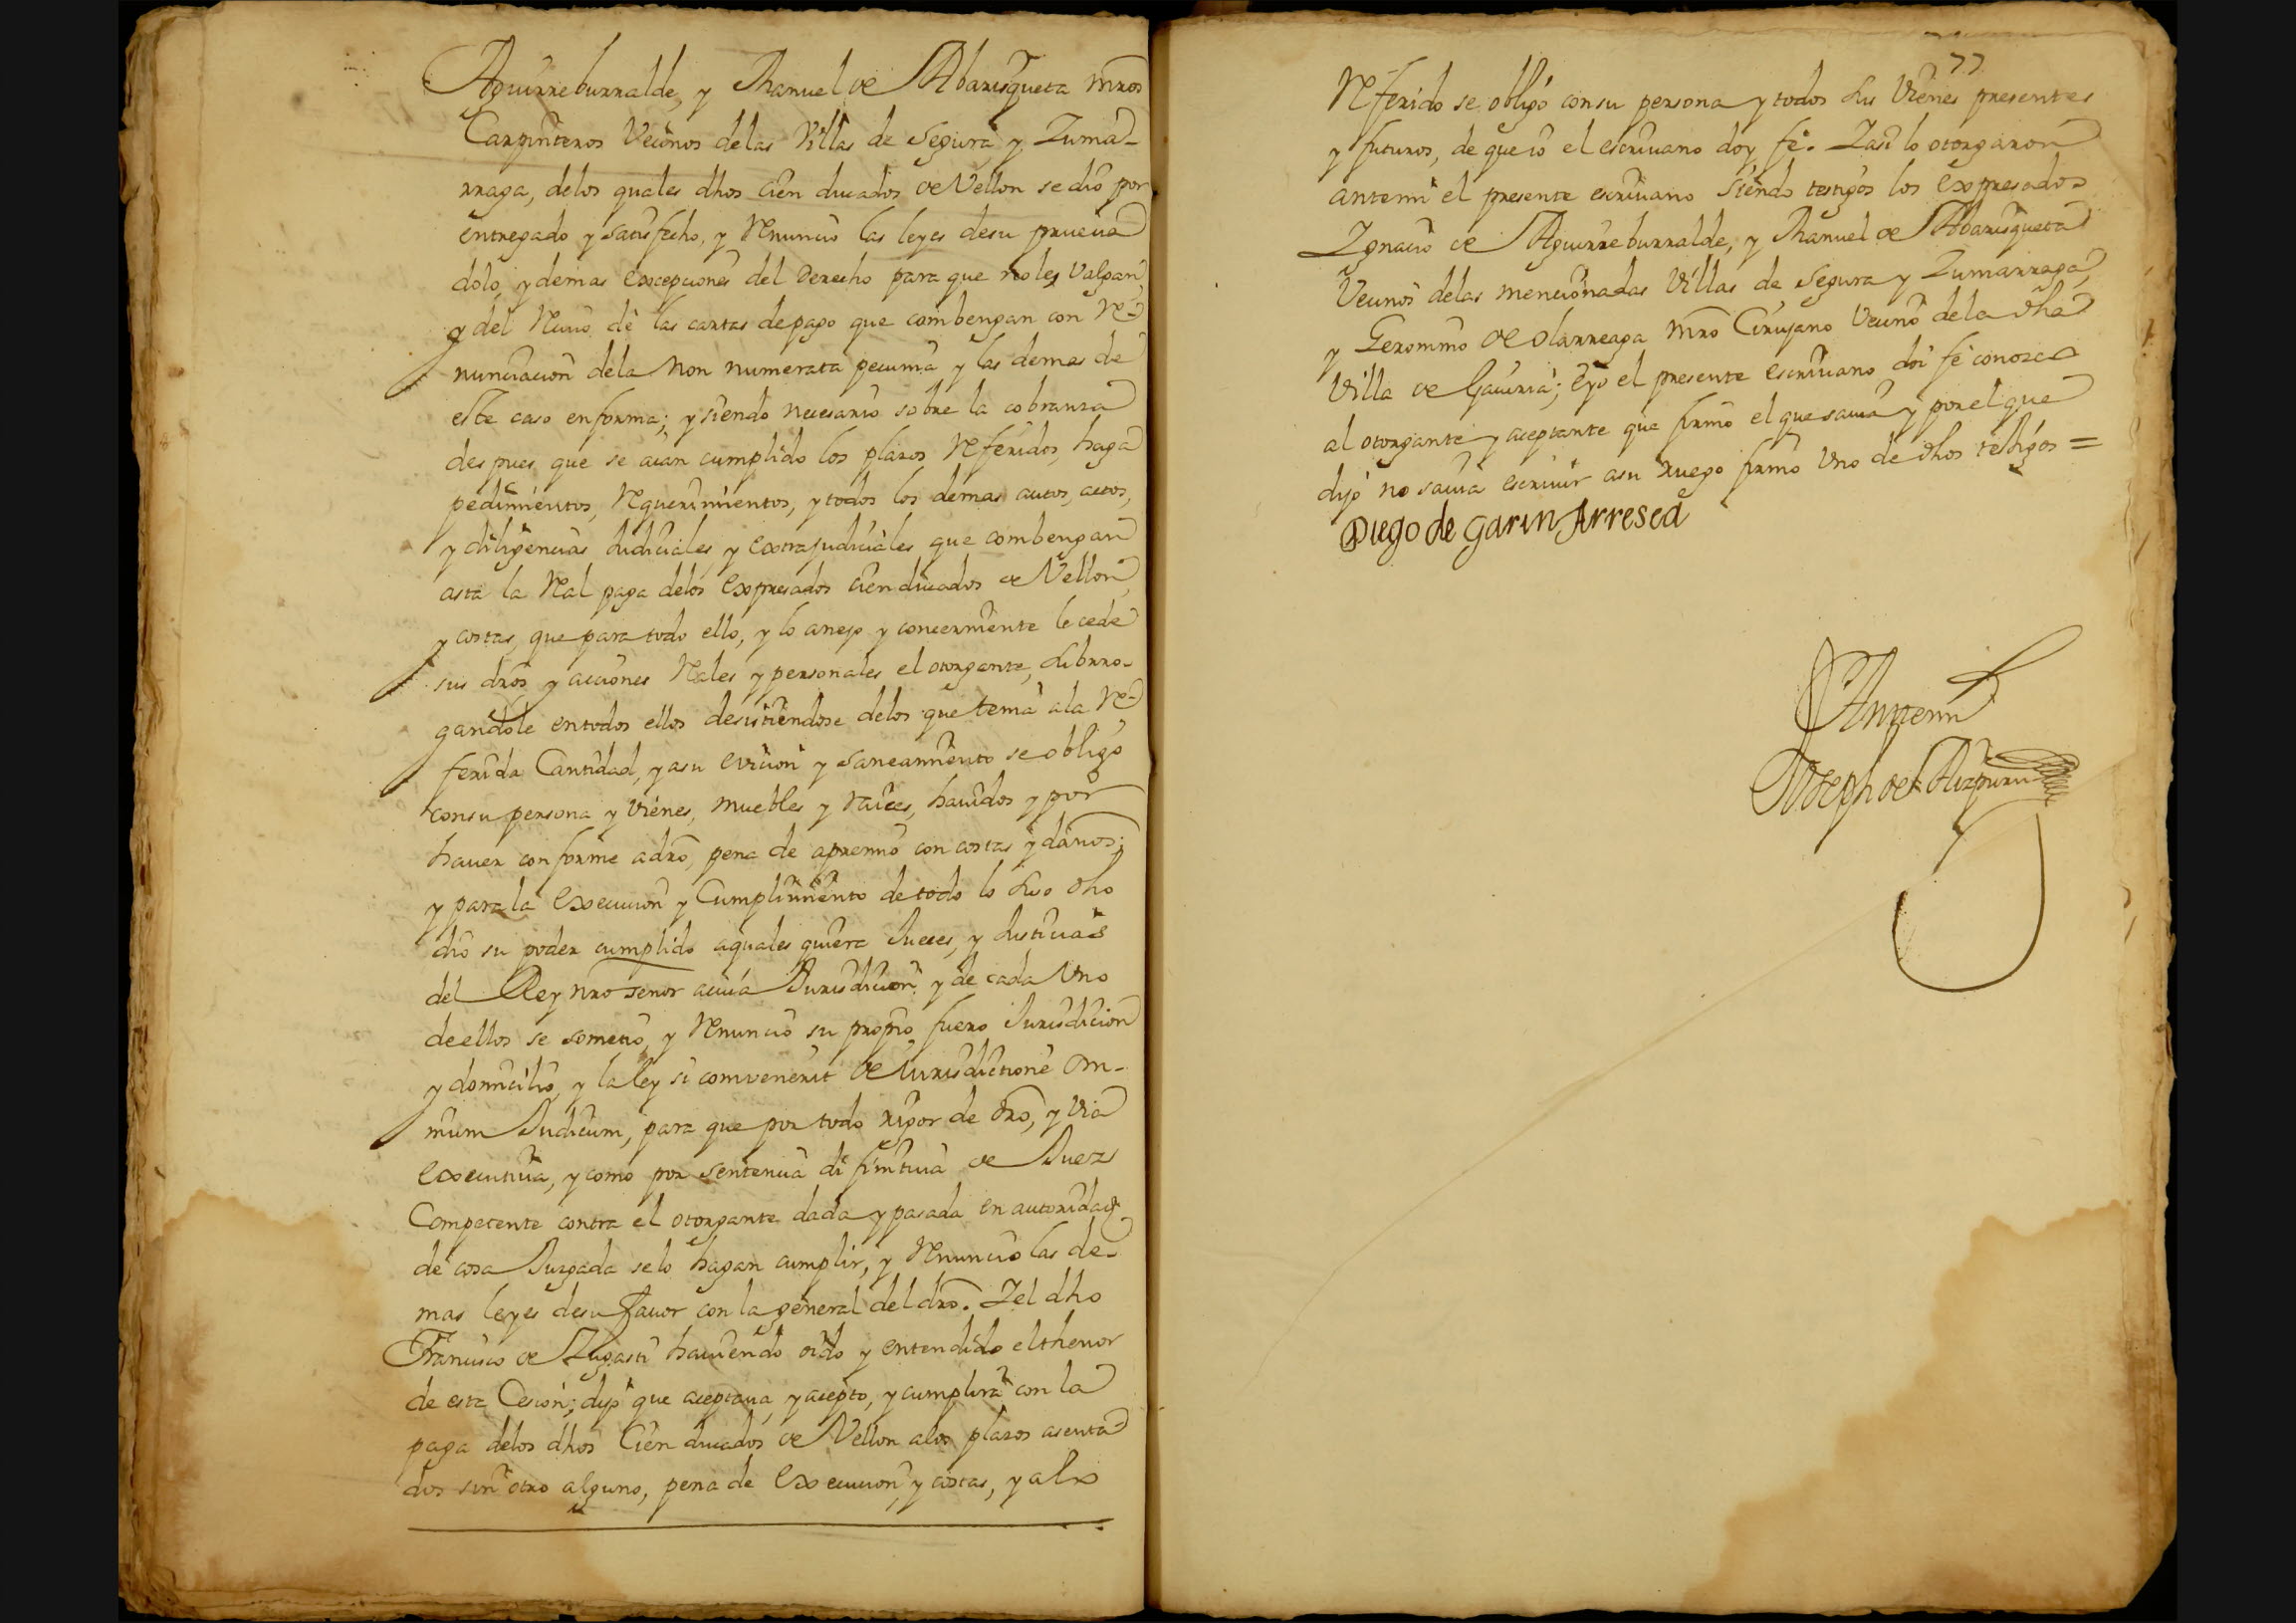 Aguirreburralde, y Manuel de Abarisqueta mros
Carpinteros Vecinos delas Villas de Segura y Zuma-
rraga, delos quales dhos cien ducados de Vellon se dio por
entregado y satisfecho, y Renuncio las leyes desu prueua
dolo, y demas excepciones del Derecho para que no les Valgan
y del Reciuo de las cartas depago que combengan con Re-
nunciacion dela non numerata pecunia y las demas de
este caso enforma; y siendo necesario sobre la cobranza
despues que se aian cumplido los plazos Referidos, haga
pedimientos, Requerimientos, y todos los demas autos, actos,
y diligencias Judiciales, y extrajudiciales que combengan
asta la Real paga delos expresados cien ducados de Vellon,
y costas, que para todo ello, y lo anejo y concerniente le cede
sus dros y acciones Reales y personales el otorgante, subrro-
gandole entodos ellos desistiendose delos que tenia ala Re-
ferida Cantidad, y asu eviccion y saneamiento se obligo
consu persona y vienes, muebles y raices, hauidos y por
hauer conforme adro, pena de apremio con costas y daños;
y para la execucion y Cumplimiento de todo lo suso dho
dio su poder cumplido aquales quiera Jueces, y Justicias
del Rey nro señor acuia Jurisdicion y de cada Vno
deellos se sometio, y Renuncio su propio fuero Jurisdicion
y domicilio, y la ley si comvenerit de iurisdictione om-
nium Judicum, para que por todo rigor de dro, y via
executiua, y como por sentencia difinitiua de Juez
Competente contra el otorgante dada y pasada en autoridad
de cosa Juzgada selo hagan cumplir, y Renuncio las de-
mas leyes desu fauor con la general del dro. Y el dho
Francisco de Zugasti hauiendo oido y entendido el thenor
de esta Cesion; dijo que aceptaua, y acepto, y cumplira con la
paga delos dhos Cien ducados de Vellon alos plazos asenta-
dos sin otro alguno, pena de execucion, y costas, y alo
77
Referido se obligo consu persona y todos sus Vienes presentes
y futuros, de que io el escriuano doy fe. Y asi lo otorgaron
antemi el presente escriuano siendo testigos los expresados
Ygnacio de Aguirreburralde, y Manuel de Abarisqueta
Vecinos delas mencionadas Villas de Segura y Zumarraga,
y Geronimo de Olarreaga mro Cirujano Vecino dela dha
Villa de Gauiria; e yo el presente escriuano doi fe conozco
al otorgante y aceptante que firmo el que sauia y por el que
dijo no sauia escriuir asu ruego firmo Vno de dhos testigos =
Diego de Garin Arresea
Antemi
Joseph de Aizpuru